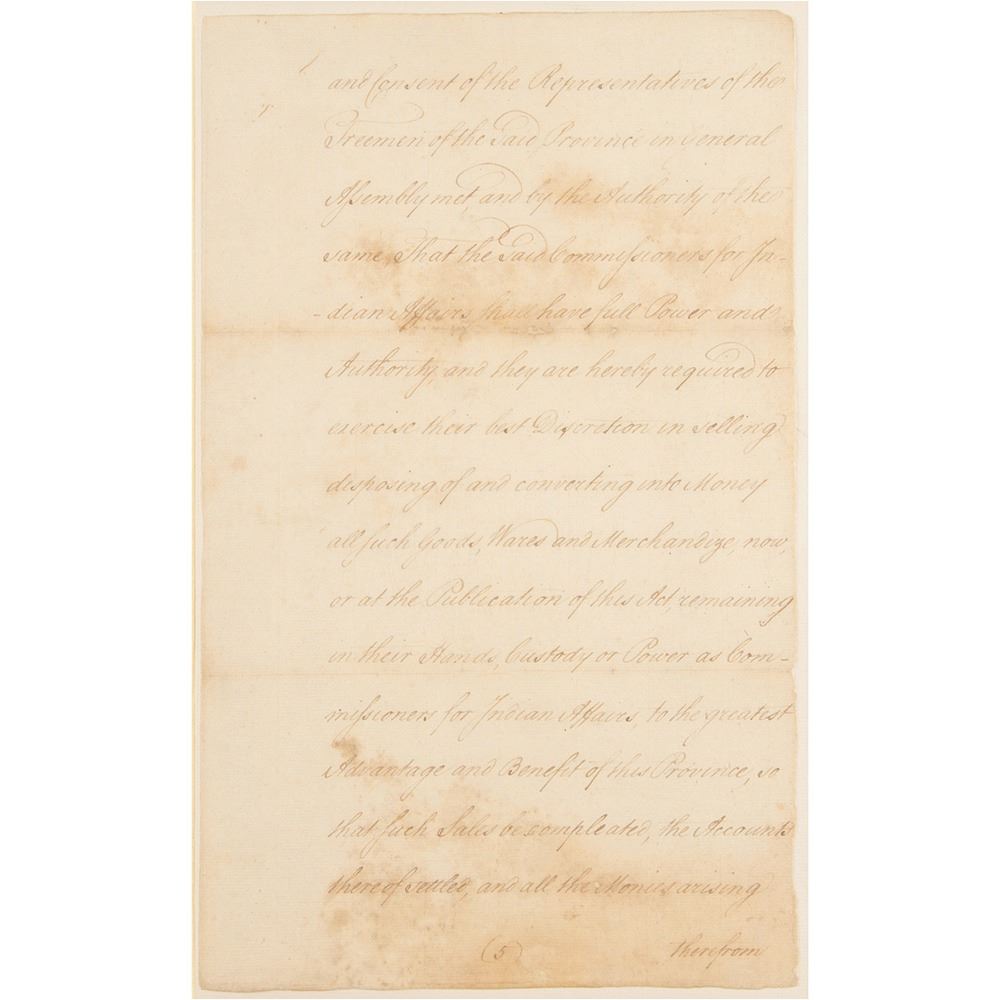 and Consent of the Representatives of the
Freemen of the Said Province in General
Assembly met, and by the Authority of the
same, That the Said Commissioners for In-
-dian Affairs shall have full Power and
Authority, and they are hereby required to
exercise their best Discretion in selling
disposing of and converting into Money
all such Goods, Wares and Merchandize, now,
or at the Publication of this Act, remaining
in their Hands, Custody or Power as Com-
missioners for Indian Affairs, to the greatest
Advantage and Benefit of this Province, so
that such Sales be compleated, the Accounts
thereof settled, and all the Monies arising
(5) therefrom